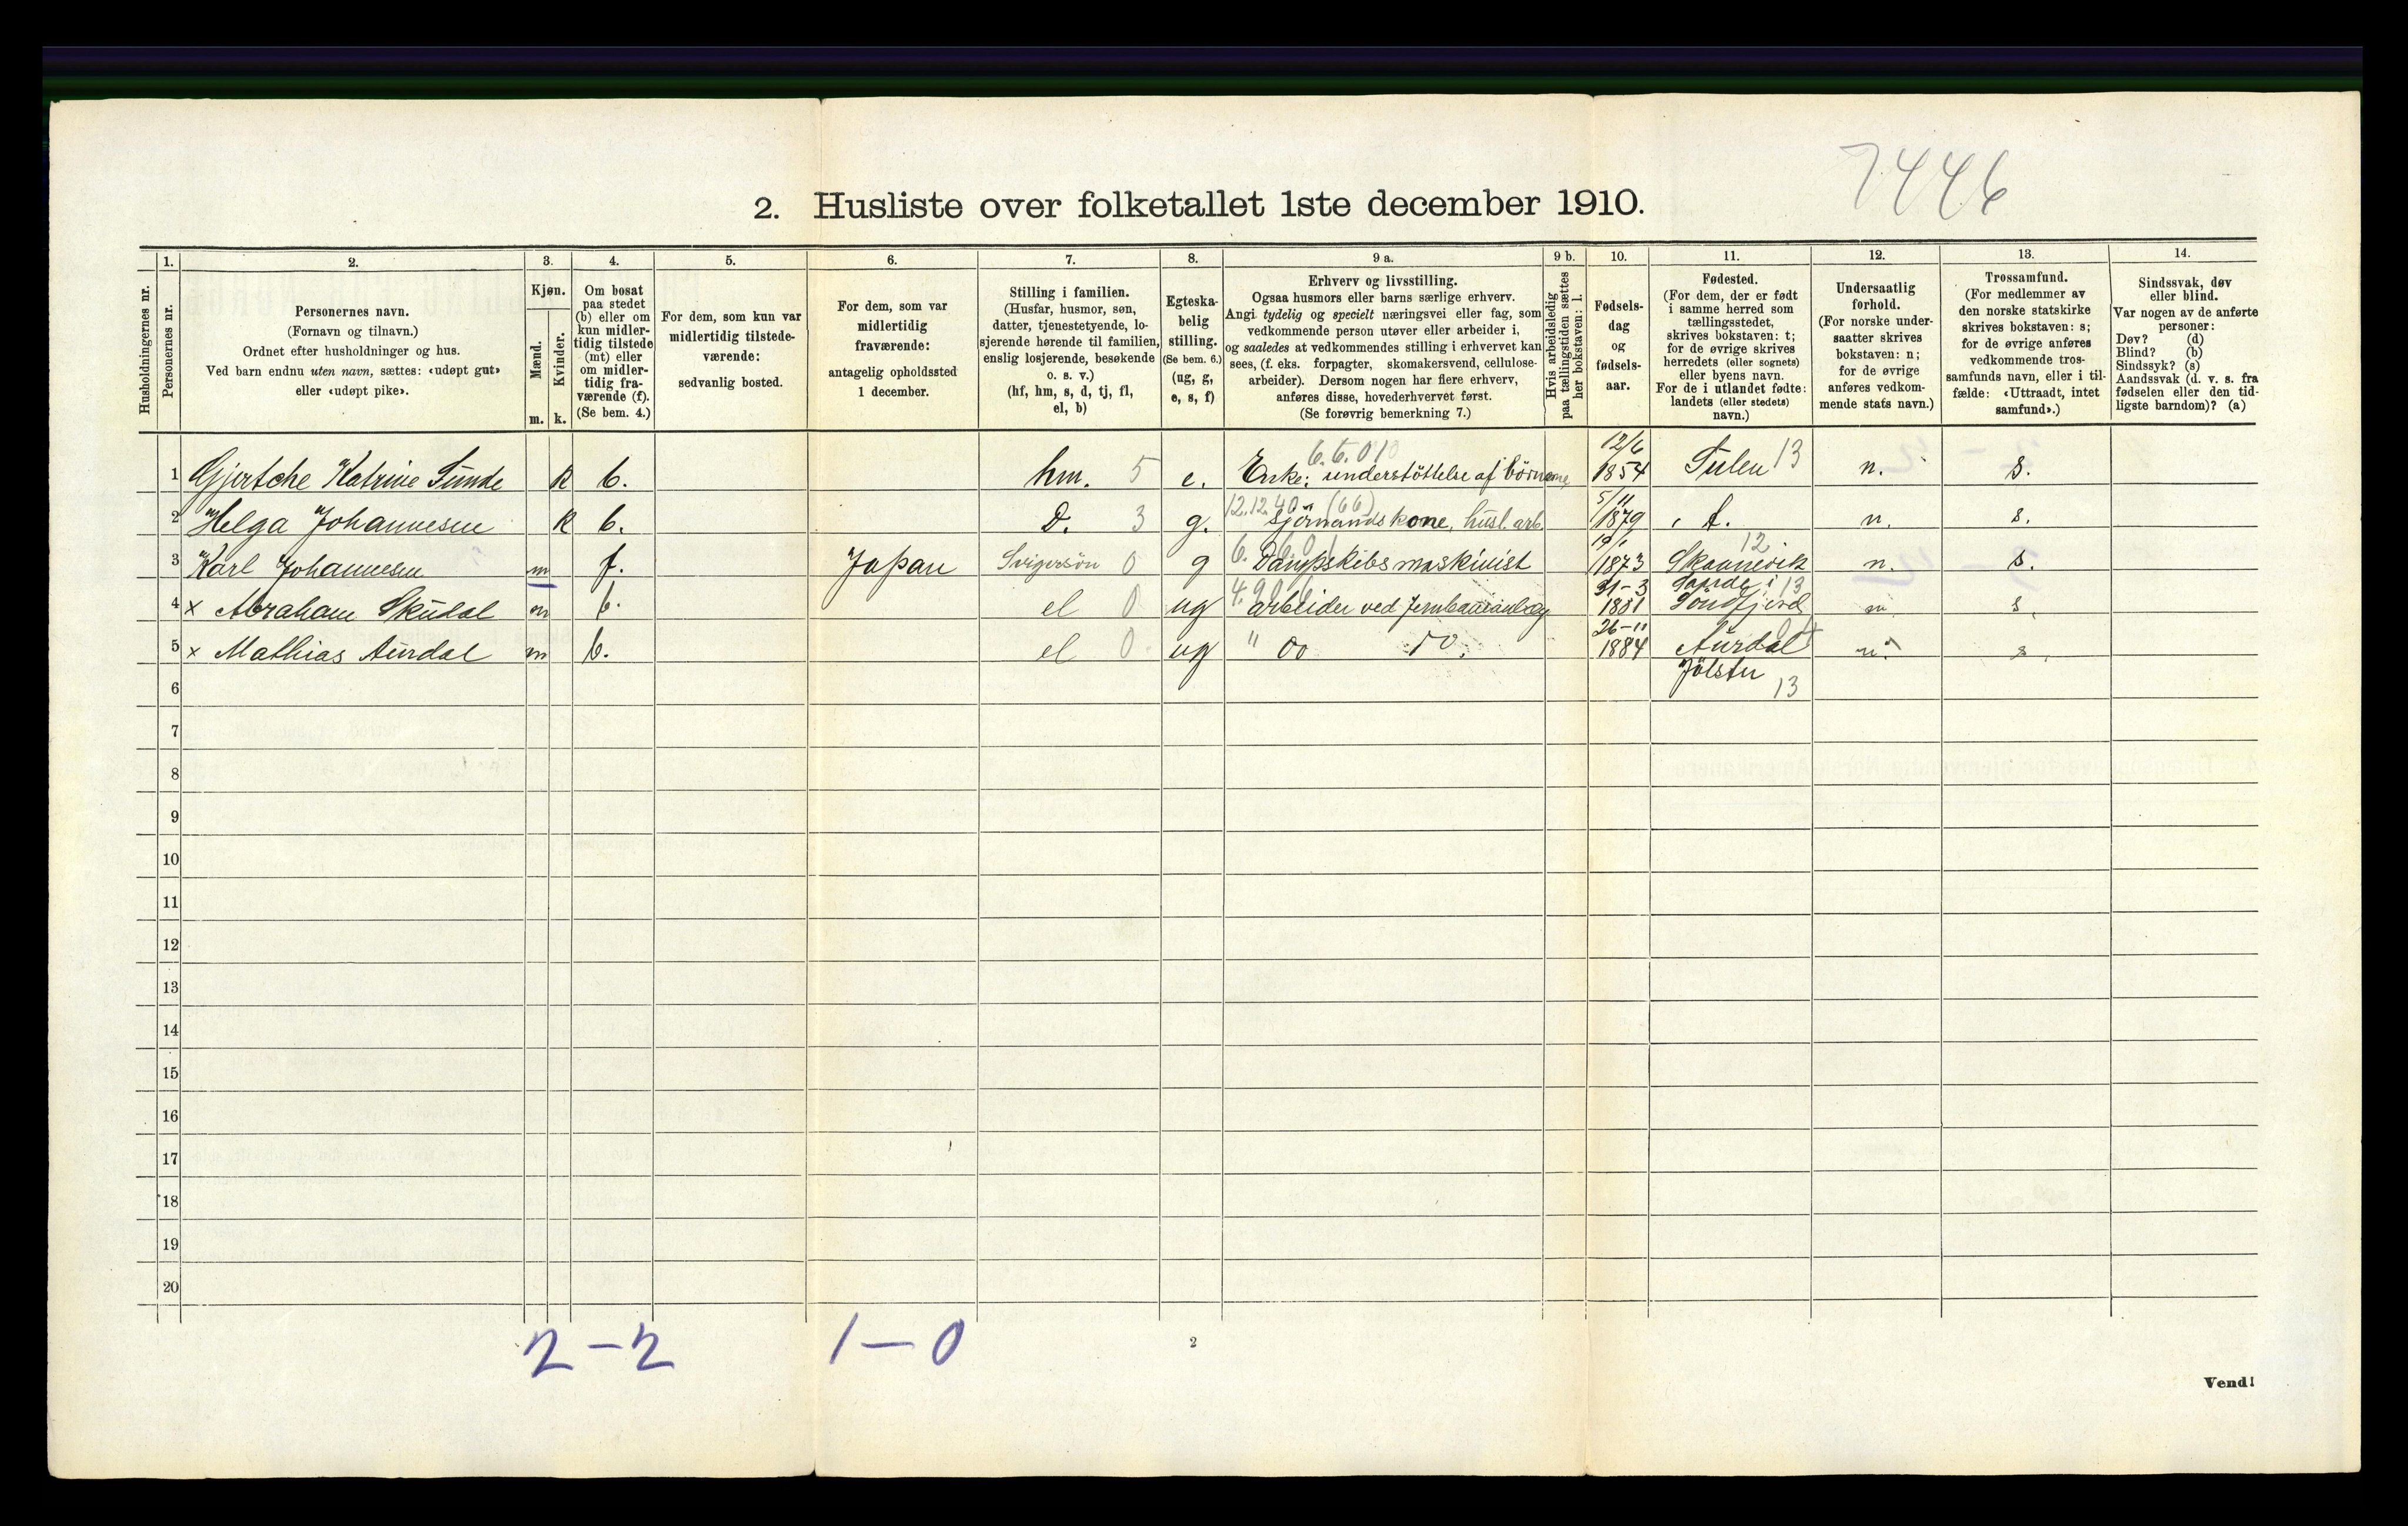 7446
2. Husliste over folketallet 1ste december 1910.
Husholdningernes nr.
1.
Personernes nr.
2.
Personernes navn.
(Fornavn og tilnavn.)
Ordnet efter husholdninger og hus.
Ved barn endnu uten navn, sættes: «udøpt gut»
eller «udøpt pike».
3.
Kjøn.
Mænd.
Kvinder.
m. k.
4.
Om bosat
paa stedet
(b) eller om
kun midler-
tidig tilstede
(mt) eller
om midler-
tidig fra-
værende (f).
(Se bem. 4.)
5.
For dem, som kun var
midlertidig tilstede-
værende:
sedvanlig bosted.
6.
For dem, som var
midlertidig
fraværende:
antagelig opholdssted
1 december.
7.
Stilling i familien.
(Husfar, husmor, søn,
datter, tjenestetyende, lo-
sjerende hørende til familien,
enslig losjerende, besøkende
o. s. v.)
(hf, hm, s, d, tj, fl,
el, b)
8.
Egteska-
belig
stilling.
(Se bem. 6.)
(ug, g,
e, s, f)
9 a.
Erhverv og livsstilling.
Ogsaa husmors eller barns særlige erhverv.
Angi tydelig og specielt næringsvei eller fag, som
vedkommende person utøver eller arbeider i,
og saaledes at vedkommendes stilling i erhvervet kan
sees, (f. eks. forpagter, skomakersvend, cellulose-
arbeider). Dersom nogen har flere erhverv,
anføres disse, hovederhvervet først.
(Se forøvrig bemerkning 7.)
9 b.
Hvis arbeidsledig
paa tællingstiden sættes
her bokstaven: l.
10.
Fødsels-
dag
og
fødsels-
aar.
11.
Fødested.
(For dem, der er født
i samme herred som
tællingsstedet,
skrives bokstaven: t;
for de øvrige skrives
herredets (eller sognets)
eller byens navn.
For de i utlandet fødte:
landets (eller stedets)
navn.)
12.
Undersaatlig
forhold.
(For norske under-
saatter skrives
bokstaven: n;
for de øvrige
anføres vedkom-
mende stats navn.)
13.
Trossamfund.
(For medlemmer av
den norske statskirke
skrives bokstaven: s;
for de øvrige anføres
vedkommende tros-
samfunds navn, eller i til-
fælde: «Uttraadt, intet
samfund».)
14.
Sindssvak, døv
eller blind.
Var nogen av de anførte
personer:
Døv? (d)
Blind? (b)
Sindssyk? (s)
Aandssvak (d. v. s. fra
fødselen eller den tid-
ligste barndom)? (a)
6.6.010 12/6
1 Gjertche Katrine Sunde k b. hm. 5 e. Enke: understöttelse af börnene 1854 13 n. s.
12.12.40 (66) 5/11
2 Helga Johannesen k b. D. 3 g. Sjömandskone, husl. arb. 1879 t. n. s.
3 Karl Johannesen m f. Japan Svigersön 0 g Dampskibsmaskinist 1873 Skaanevik 12 n. s.
31-3 13
4 x Abraham Skudal m b. el 0 ug arbeider ved Jernbaneanlæg 1881 Söndfjord n s.
26-11
5 x Mathias Aurdal m b. el 0 ug " Do Do. 1884 Aurdal n. s.
6 Jölster 13
7
8
9
10
11
12
13
14
15
16
17
18
19
20
2-2 1-0
2
Vend!